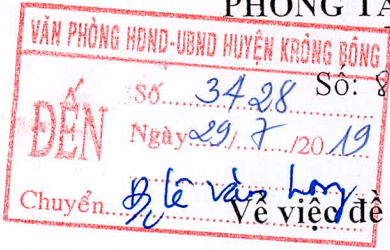 PHÒNG TÀ
VĂN PHÒNG HĐND-UBND HUYỆN KRÔNG BÔNG
Số: 8
ĐẾN
Số.....3428
Ngày 29/.7./2019
Chuyển... Đ/c Lê Văn Long
Về việc đề